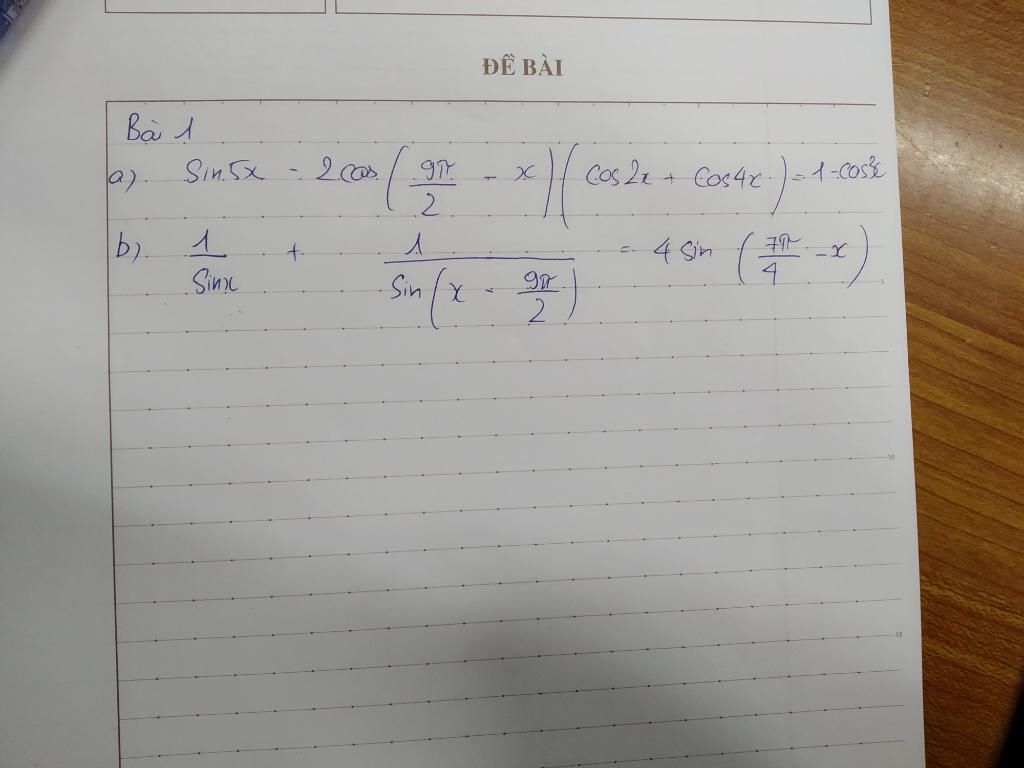 ĐỀ BÀI
Bài 1
a) Sin5x - 2cos(9π/2 - x)(cos2x + cos4x) = 1-cos²x
b) 1/Sinx + 1/Sin(x - 9π/2) = 4 Sin(7π/4 - x)
5
10
15